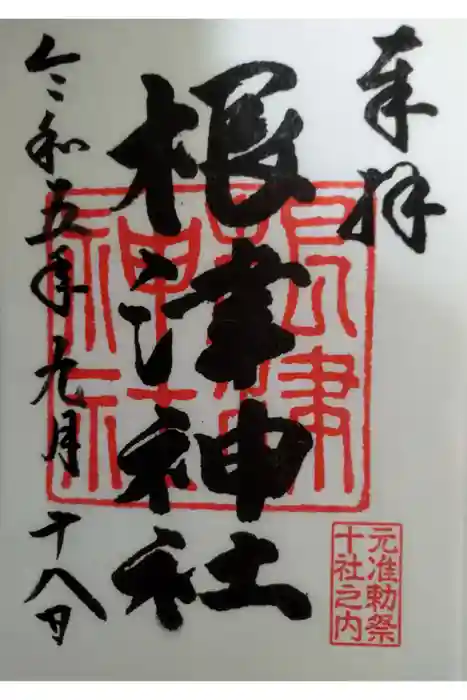 奉拝
根津神社
根津神社
元准勅祭
十社之内
令和五年九月十八日